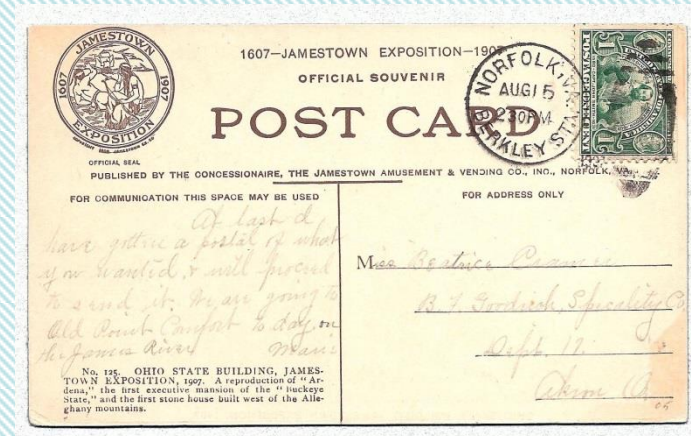 JAMESTOWN
1607
1907
EXPOSITION
OFFICIAL SEAL
1607—JAMESTOWN EXPOSITION—1907
OFFICIAL SOUVENIR
POST CARD
NORFOLK, VA.
AUG 15
230PM
BERKLEY STA.
PUBLISHED BY THE CONCESSIONAIRE, THE JAMESTOWN AMUSEMENT & VENDING CO., INC., NORFOLK, VA.
FOR COMMUNICATION THIS SPACE MAY BE USED
At last I
have gotten a postal of what
you wanted, & will proceed
to send it. We are going to
Old Point Comfort to day, on
the James River
Marie
No. 125. OHIO STATE BUILDING, JAMES-
TOWN EXPOSITION, 1907. A reproduction of "Ar-
dena," the first executive mansion of the "Buckeye
State," and the first stone house built west of the Alle-
ghany mountains.
FOR ADDRESS ONLY
Miss Beatrice
B. F. Goodrich, Specality Co
Dept. 17.
Akron, O